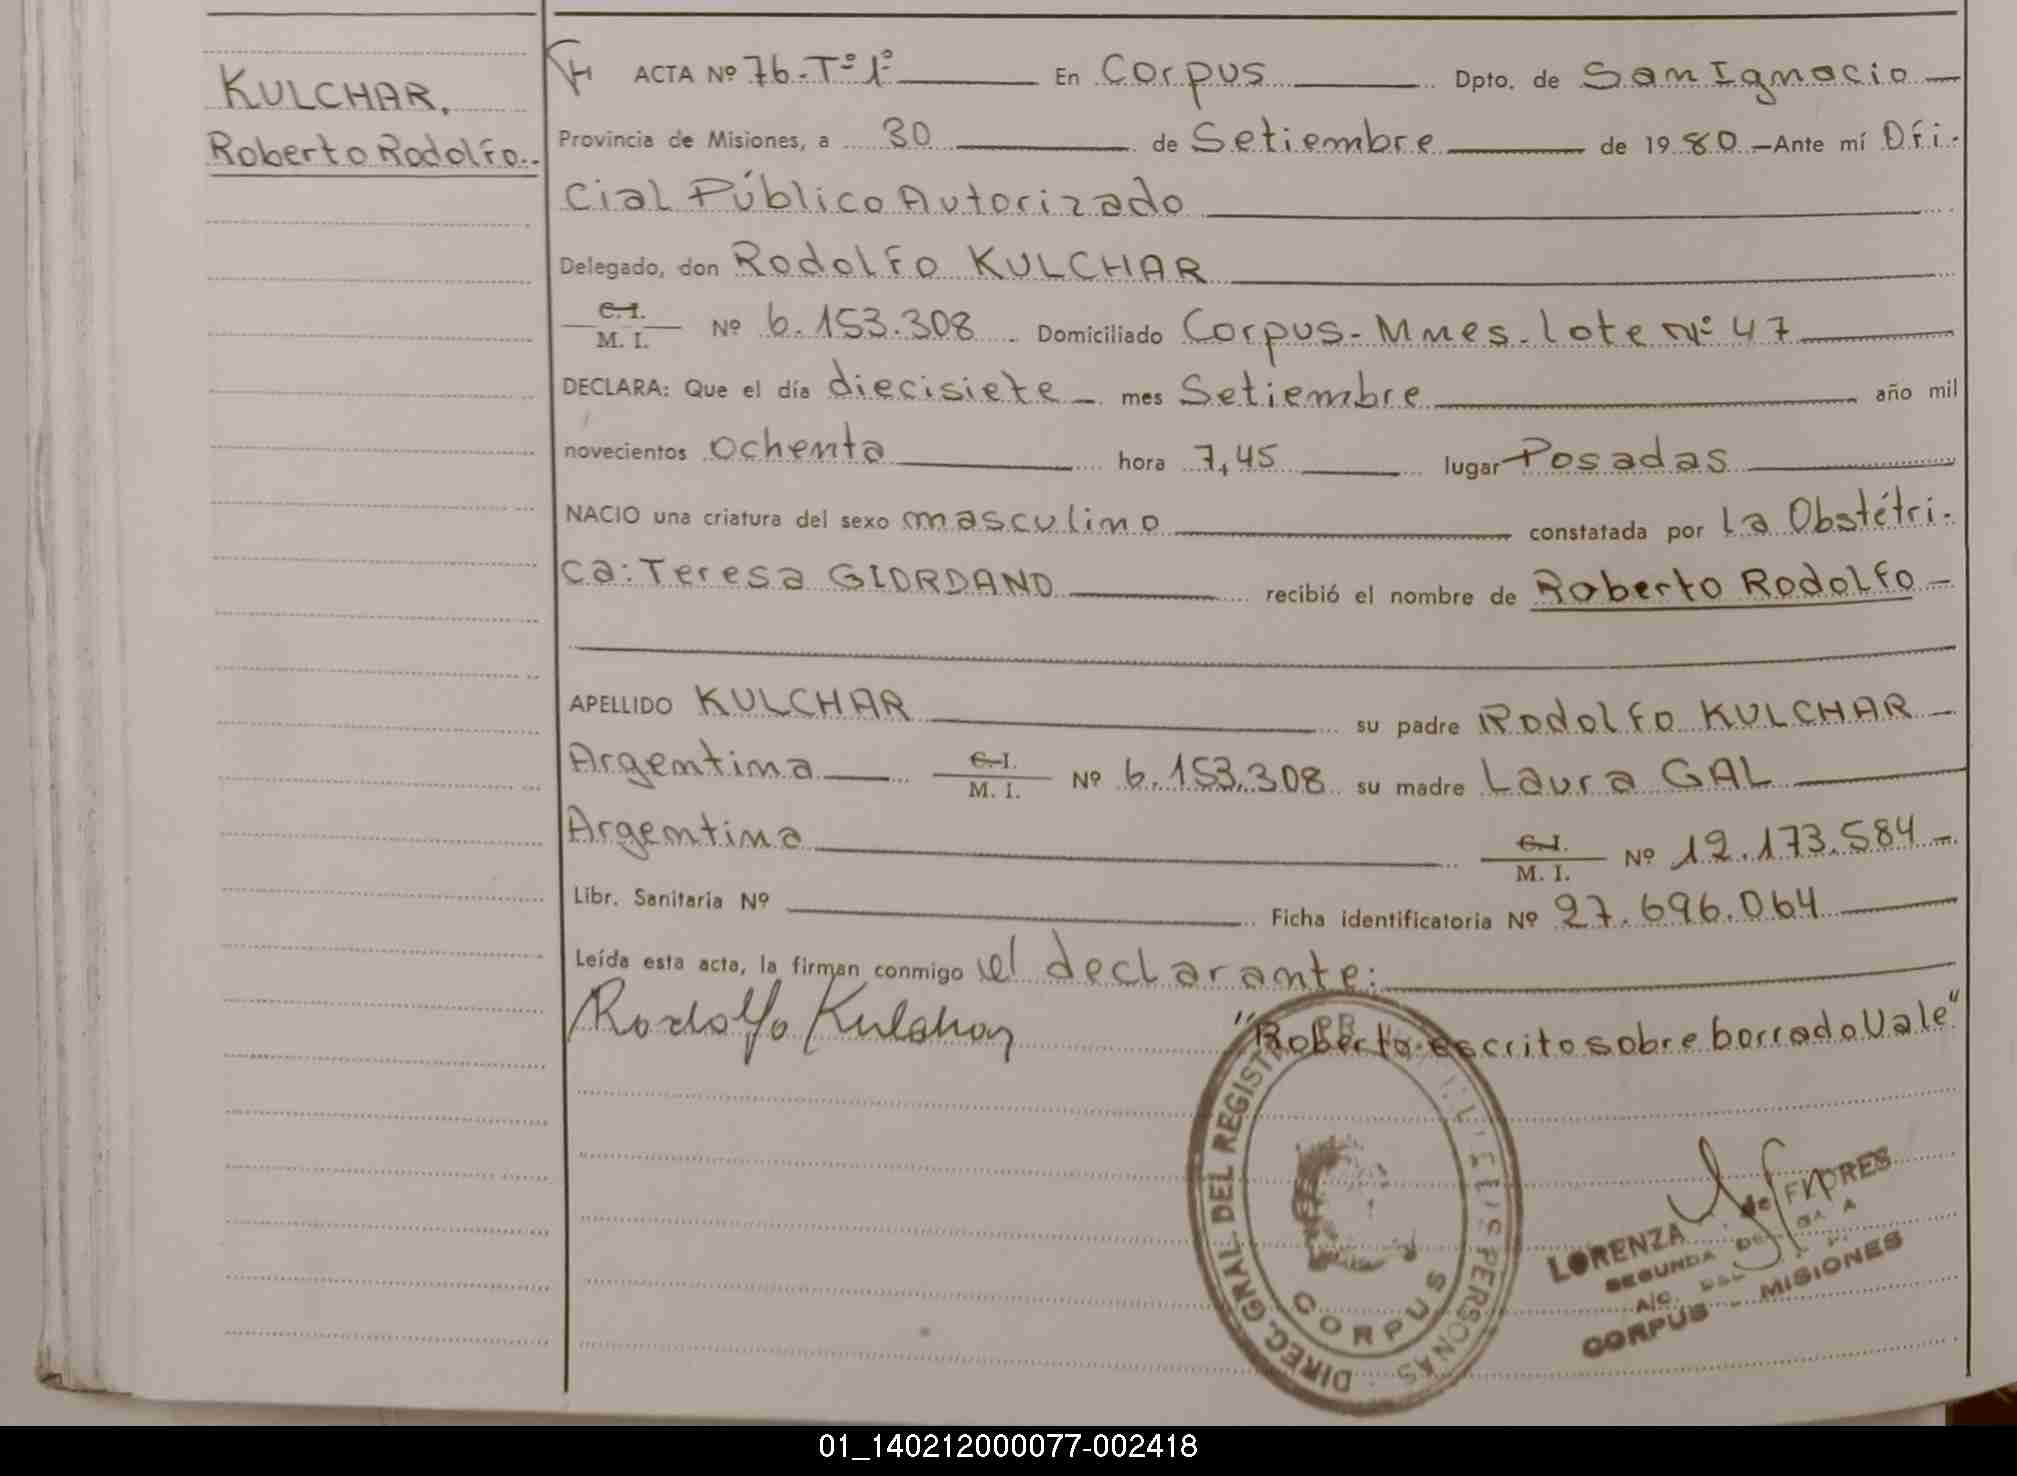 KULCHAR,
Roberto Rodolfo.
ACTA Nº 76-Tº 1º En Corpus Dpto. de San Ignacio
Provincia de Misiones, a 30 de Setiembre de 1980 —Ante mí Ofi-
cial Público Autorizado
Delegado, don Rodolfo KULCHAR
C.I.
M. I. Nº 6.153.308 Domiciliado Corpus-Mnes. lote Nº 47
DECLARA: Que el día diecisiete mes Setiembre año mil
novecientos ochenta hora 7,45 lugar Posadas
NACIO una criatura del sexo masculino constatada por la Obstétri-
ca: Teresa GIORDANO recibió el nombre de Roberto Rodolfo
APELLIDO KULCHAR su padre Rodolfo KULCHAR
Argentina C.I. M. I. Nº 6.153.308 su madre Laura GAL
Argentina C.I. M. I. Nº 12.173.584
Libr. Sanitaria Nº Ficha identificatoria Nº 27.696.064
Leída esta acta, la firman conmigo el declarante:
Rodolfo Kulchar "Roberto-escrito sobre borrado Vale"
DIREC. GRAL. DEL REGISTR PERSONAS
CORPUS
LORENZA de FLORES
SEGUNDA
A/C. DEL
CORPUS - MISIONES
01_140212000077-002418